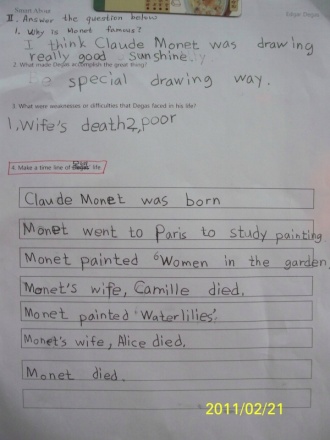 Smart Alvin
Edgar Degas
II. Answer the question below
1. Why is Monet famous?
I think Claude Monet was drawing
really good Sunshine
2. What made Degas accomplish the great thing?
special drawing way.
3. What were weaknesses or difficulties that Degas faced in his life?
1, Wife's death 2, poor
4. Make a time line of life.
Claude Monet was born
Monet went to Paris to study painting
Monet painted "Women in the garden
Monet's wife, Camille died.
Monet painted 'Waterlilies'.
Monet's wife, Alice died.
Monet died.
2011/02/21